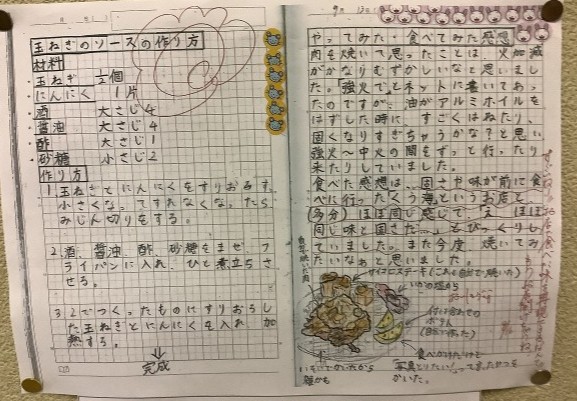 玉ねぎのソースの作り方
材料
・玉ねぎ 1/2個
・にんにく 1片
・酒 大さじ4
・醤油 大さじ4
・酢 大さじ1
・砂糖 小さじ2
作り方
1.玉ねぎとにんにくをすりおろす。
小さくなってすれなくなったら
みじん切りをする。
2.酒、醤油、酢、砂糖をまぜ、フ
ライパンに入れ、ひと煮立ちさ
せる。
3.2でつくったものにすりおろし
た玉ねぎとにんにくを入れ、加
熱する。
完成
9月 13日
やってみた・食べてみた感想
肉を焼いて思ったことは、火加減
がかなりむずかしいなと思いまし
た。強火で」とネットに書いてあっ
たのですが、油がアルミホイルを
はずした時に、すごくはねたり、
固くなりすぎちゃうかな?と思い、
強火〜中火の間をずっと行ったり
来たりしていました。
食べた感想は、固さや味が前に食
べに行ったくう海というお店と
(多分)ほぼ同じ感じで、え、ほぼ
同じ味と固さだ…。とびっくりし
ていました。また今度、焼いてみ
たいなぁと思いました。
サイコロステーキ(これも自分で焼いた)
いかの塩から
付け合わせの
ポテト
食べかけだけど
「写真とりたい!」って言ったやつを
かいた。